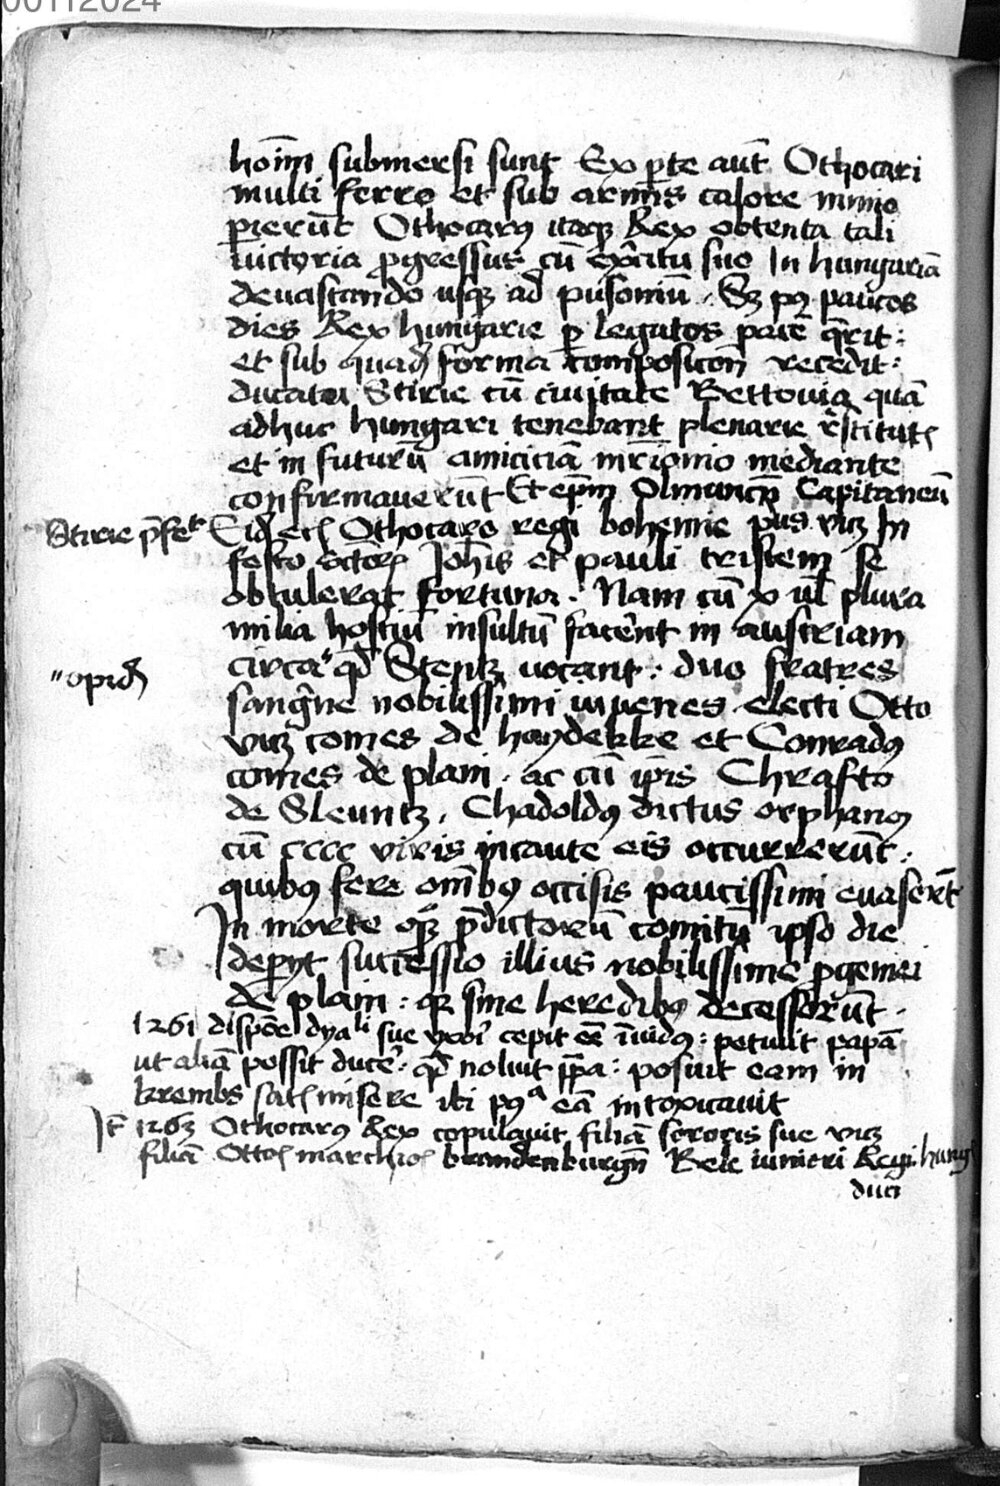 00112024
hoīm submersi sunt Ex pte aut̄ Othocari
multi ferro et sub armis calore nimio
perierūt Othocarꝰ itaqꝫ Rex obtenta tali
victoria progressus cū exercitu suo In hungariā
devastando usqꝫ ad pusoniū . Sꝫ pꝰ paucos
dies Rex hungarie per legatos pacē q̄rit :
et sub quadā forma composicōn recedit :
ducatu Stirie cū civitate Bettovia quā
adhuc hungari tenebant plenarie restitut
et in futurū amiciciā mr̄ionio mediante
confirmaverūt Et ep̄m Olmunc̄n Capitaneū
Stirie p̄fec̄ Eidē Othocaro regi bohemie pus vicꝫ In
festo sctorꝫ Joh̄is et pauli tristem se
obtulerat fortuna . Nam cū x vl̄ plura
milia hostiū insultū facerent in austriam
circa qd̄ Stentz vocant : duo fratres
"opid̄
sangwine nobilissimi iuvenes electi Otto
vicꝫ comes de haydekke et Conradꝰ
comes de plain . ac cū ip̄is Chrafto
de Sleuntz . Chadoldꝰ dictus orphanꝰ
cū cccc viris incaute eis occurrerūt :
quibꝰ fere om̄ibꝰ occisis paucissimi evaserūt
In morte qꝫ p̄dictorū comitū ipso die
deperiit successio illius nobilissime progeniei
de plain : qꝫ sine heredibꝰ decesserūt .
1261 dispōe dyali sue uxori cepit eē īvidꝰ : petivit papā
ut aliā possit ducere : qd̄ noluit ip̄a : posuit eam in
krembs satis misere ibi pꝰa eā intoxicavit
It̄ 1263 Othocarꝰ Rex copulavit filiā sororis sue vicꝫ
filiā Ottoꝭ marchioꝭ brandenburgn̄ Bele iuniori Regi hung
duci